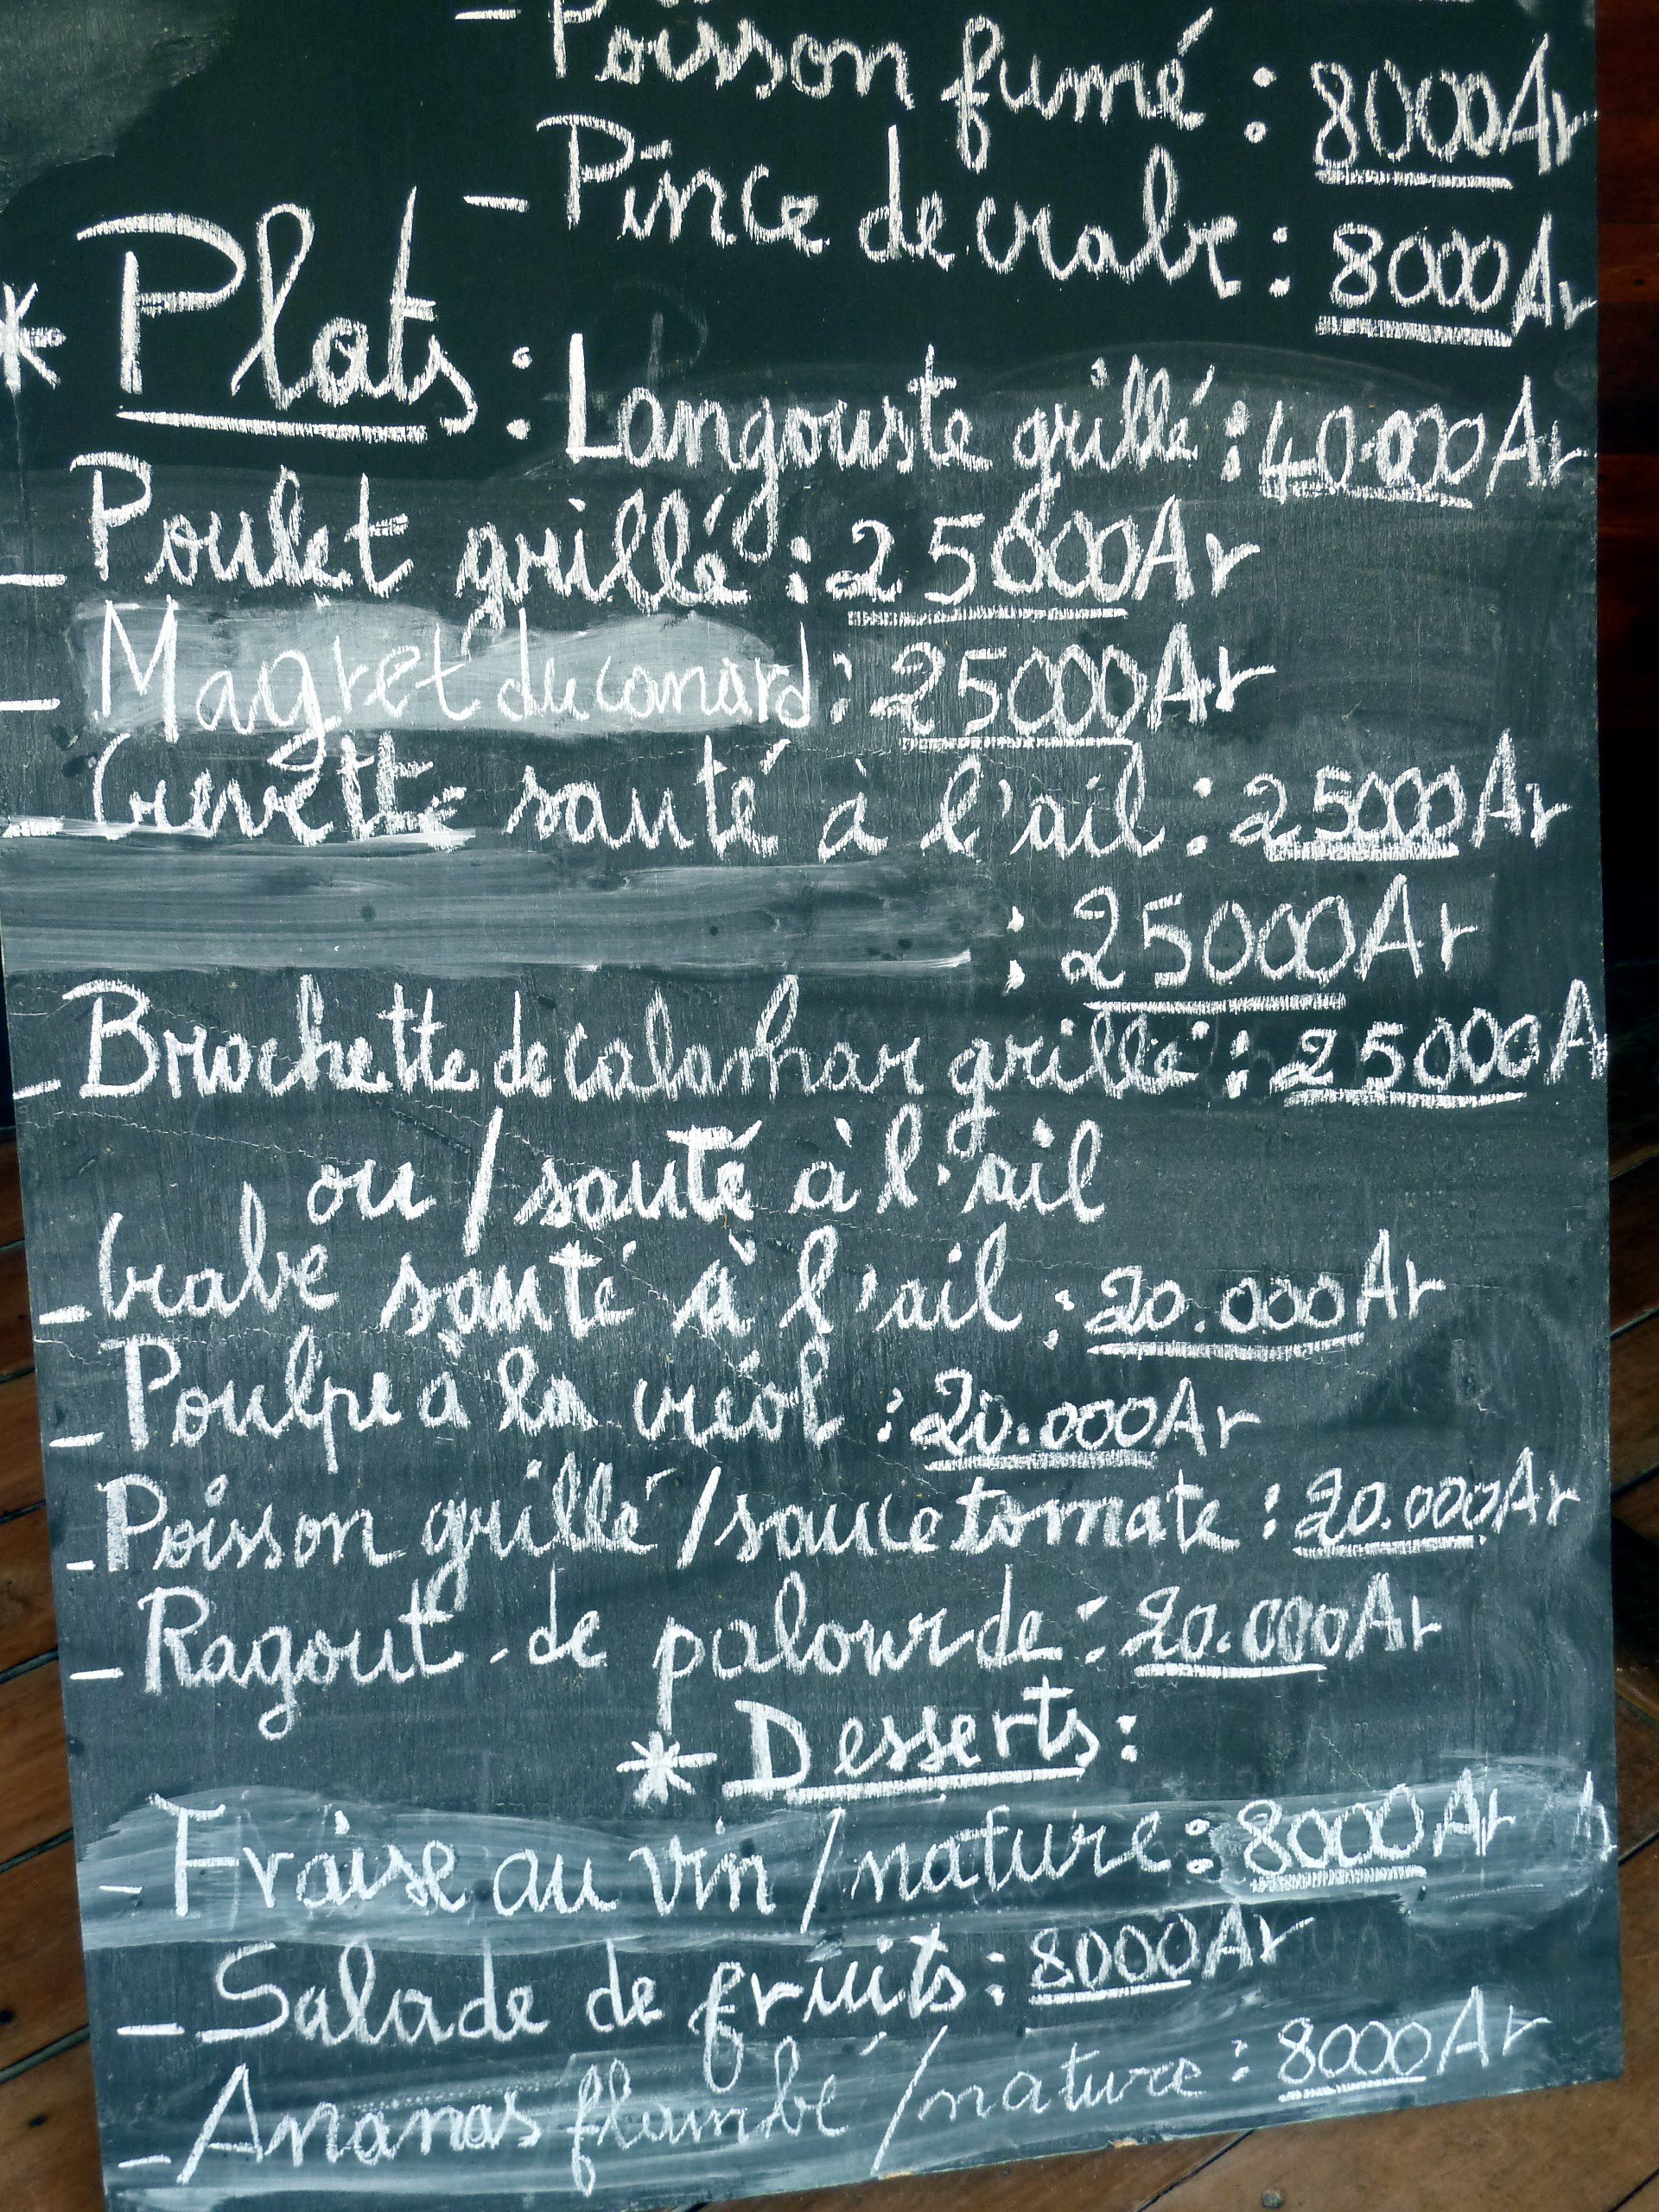 - Poisson fumé : 8000Ar
- Pince de crabe : 8000Ar
* Plats : Langouste grillé : 40.000Ar
- Poulet grillé : 25000Ar
- Magret du canard : 25000Ar
- Crevette sauté à l'ail : 25000Ar
: 25000Ar
- Brochette de calamar grillé : 25000A
ou / sauté à l'ail
- Crabe sauté à l'ail : 20.000Ar
- Poulpe à la créol : 20.000Ar
- Poisson grillé / sauce tomate : 20.000Ar
- Ragout de palourde : 20.000Ar
* Desserts :
- Fraise au vin / nature : 8000Ar
- Salade de fruits : 8000Ar
- Ananas flambé / nature : 8000Ar